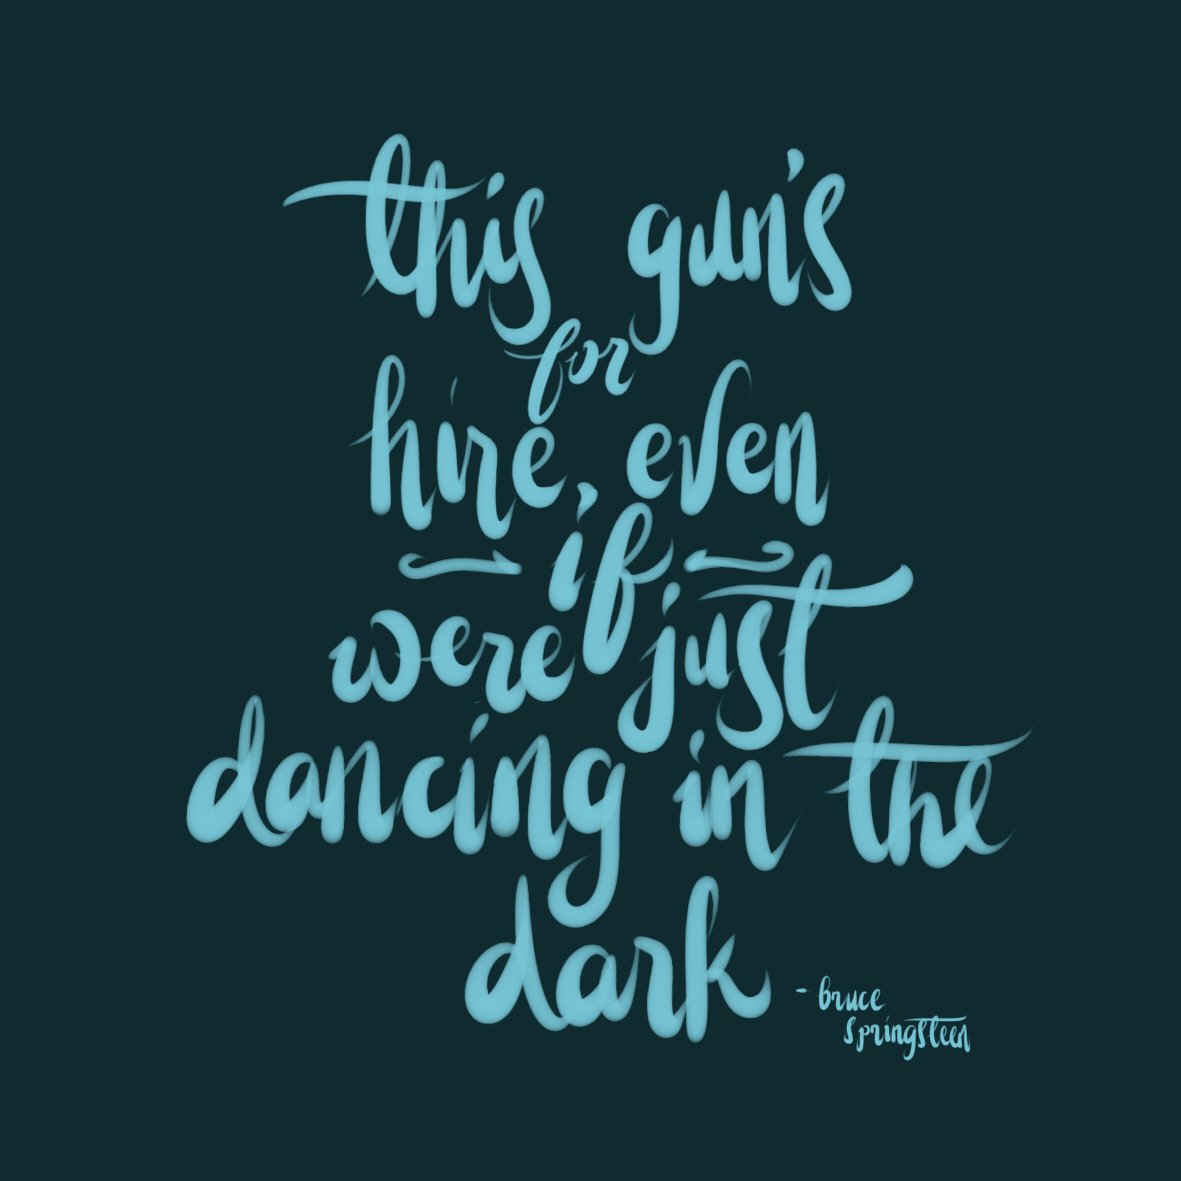 this gun's
for
hire, even
if
were just
dancing in the
dark
- bruce
springsteen